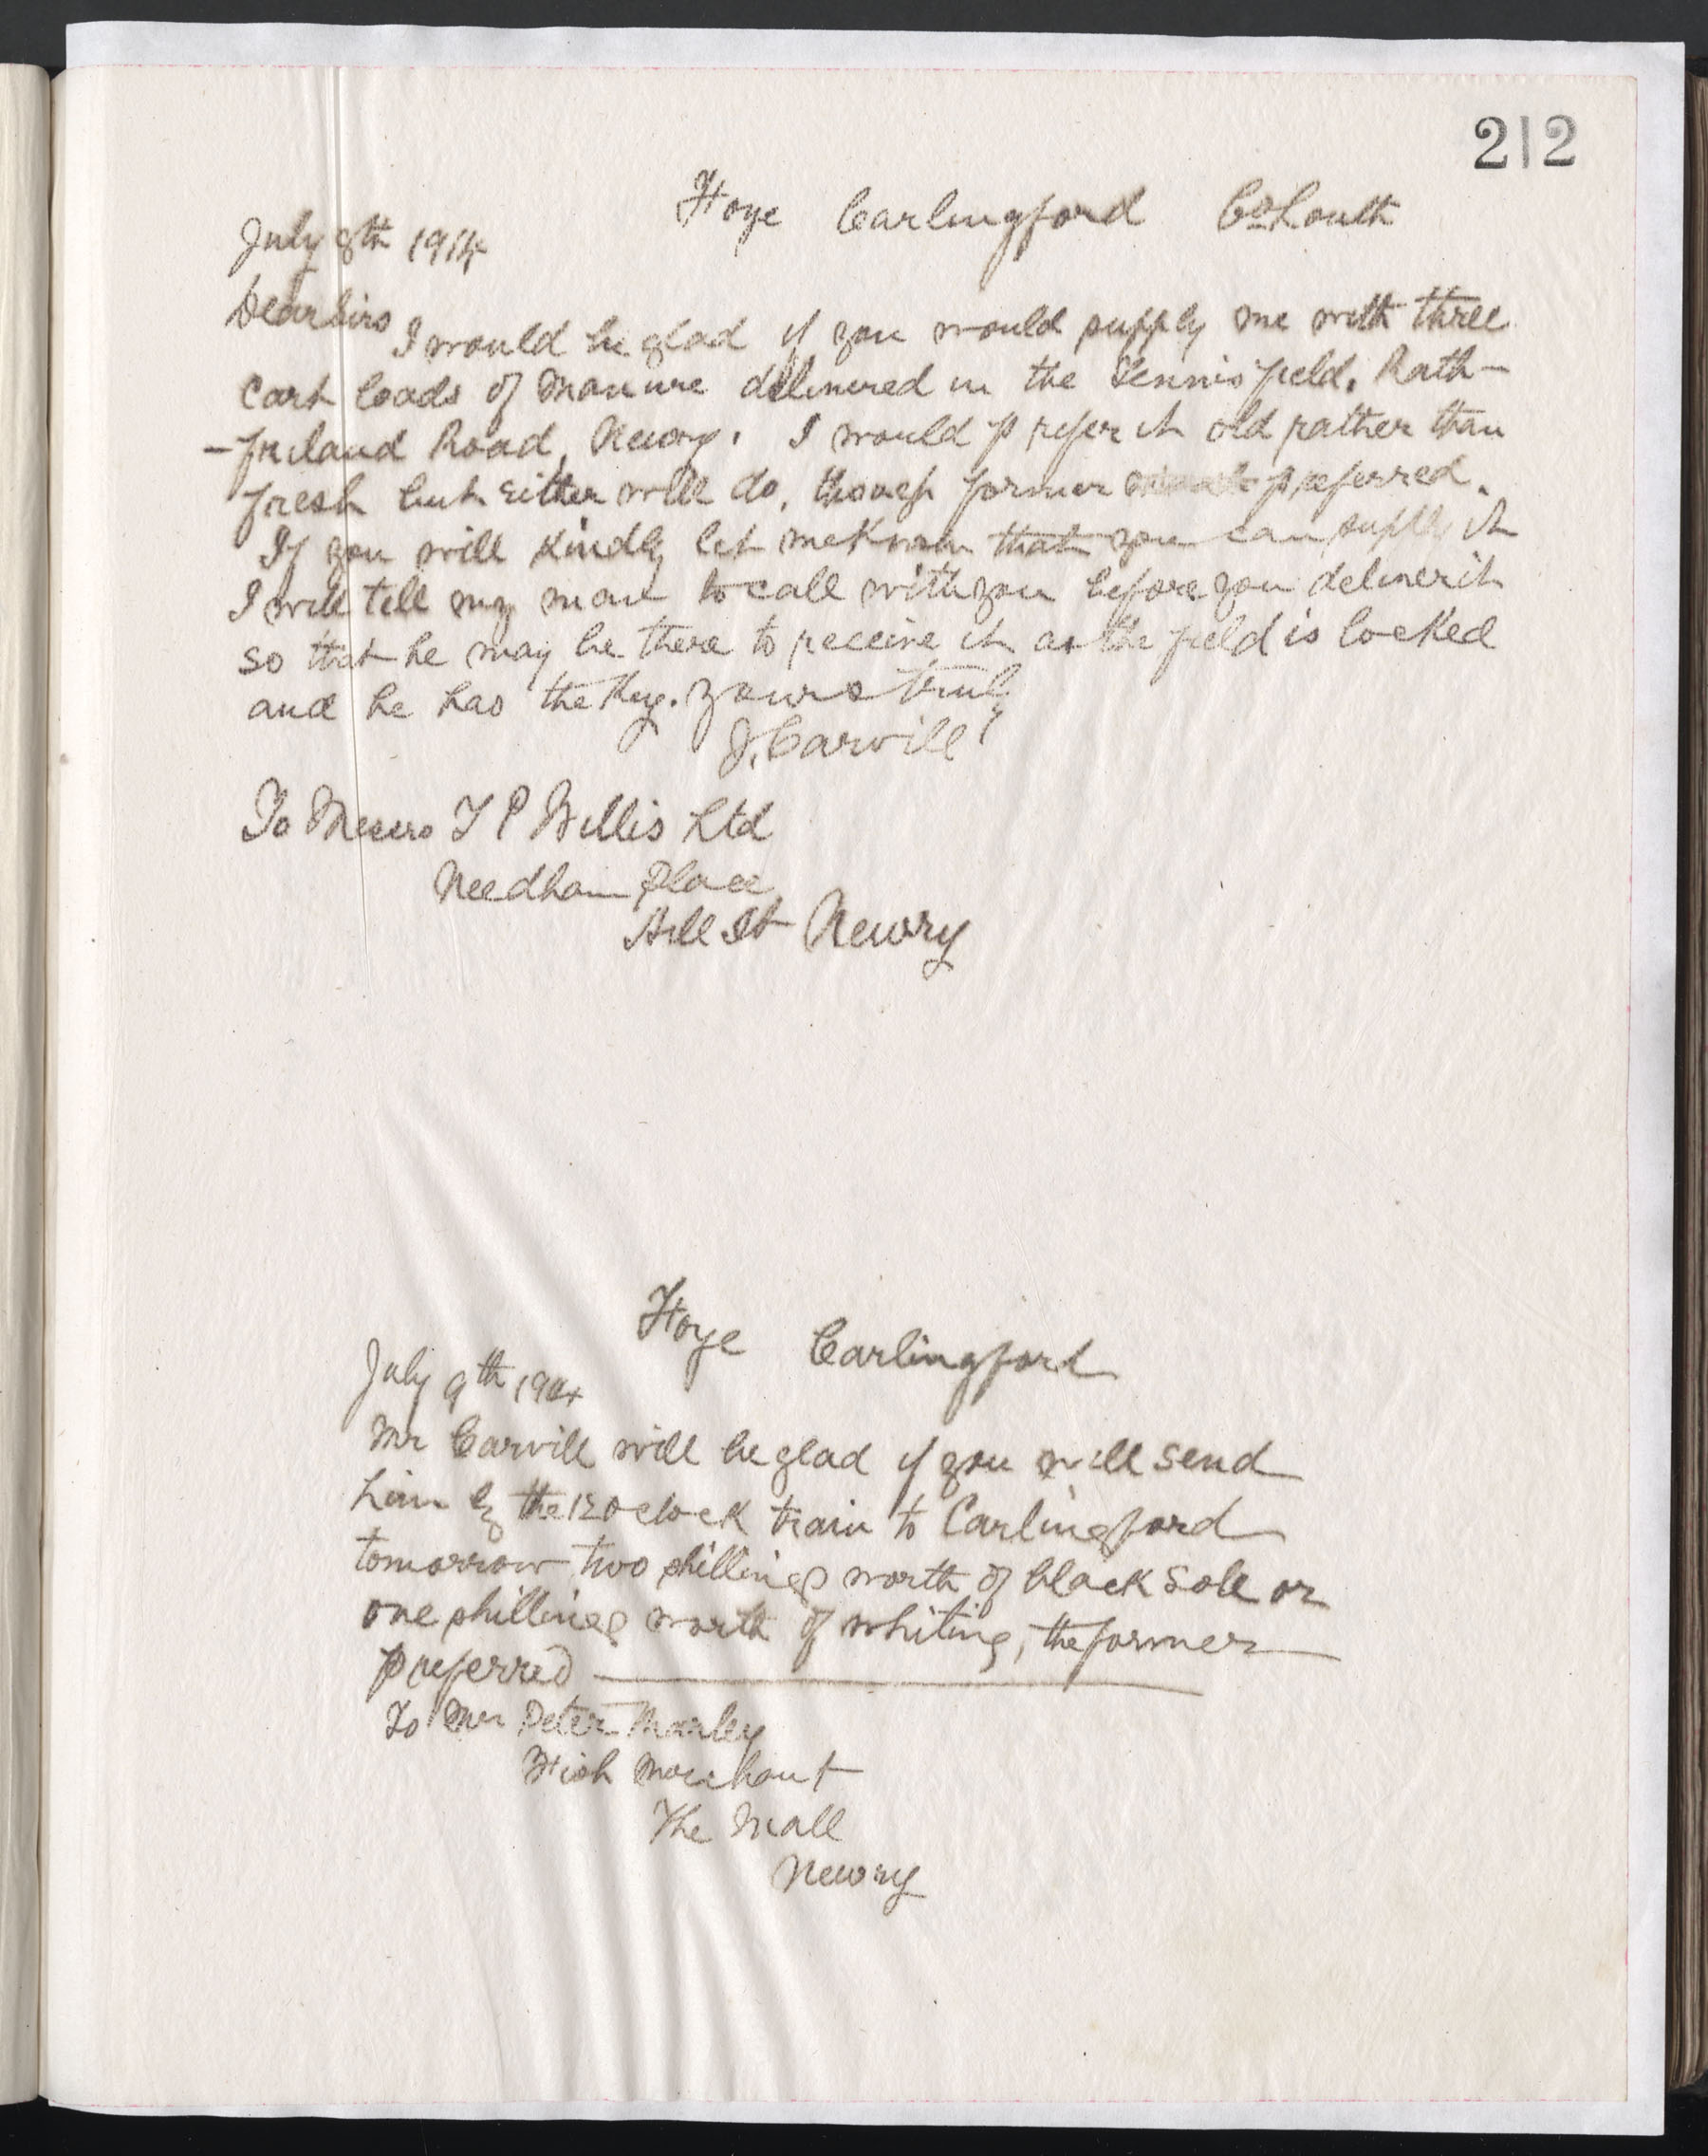 212
Foye Carlingford Co Louth
July 8th 1914
Dear Sirs
I would be glad if you would supply me with three
cart loads of manure delivered in the Tennis field, Rath-
-friland Road, Newry. I would prefer it old rather than
fresh but either will do, though former preferred.
If you will kindly let me know that you can supply it
I will tell my man to call with you before you deliver it
so that he may be there to receive it as the field is locked
and he has the key. Yours truly
J. Carvill
To Messrs T P Willis Ltd
Needham Place
Hill St Newry
Foye Carlingford
July 9th 1914
Mr Carvill will be glad if you will send
him by the 12 oclock train to Carlingford
tomorrow two shillings worth of black sole or
one shillings worth of whiting, the former
preferred
To Mr Peter Manley
Fish Merchant
The Mall
Newry